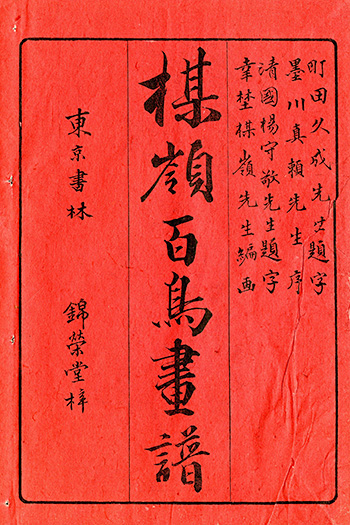 町田久成先生題字
墨川真頼先生序
清國楊守敬先生題字
幸埜楳嶺先生編画
楳嶺百鳥畫譜
東京書林 錦榮堂梓